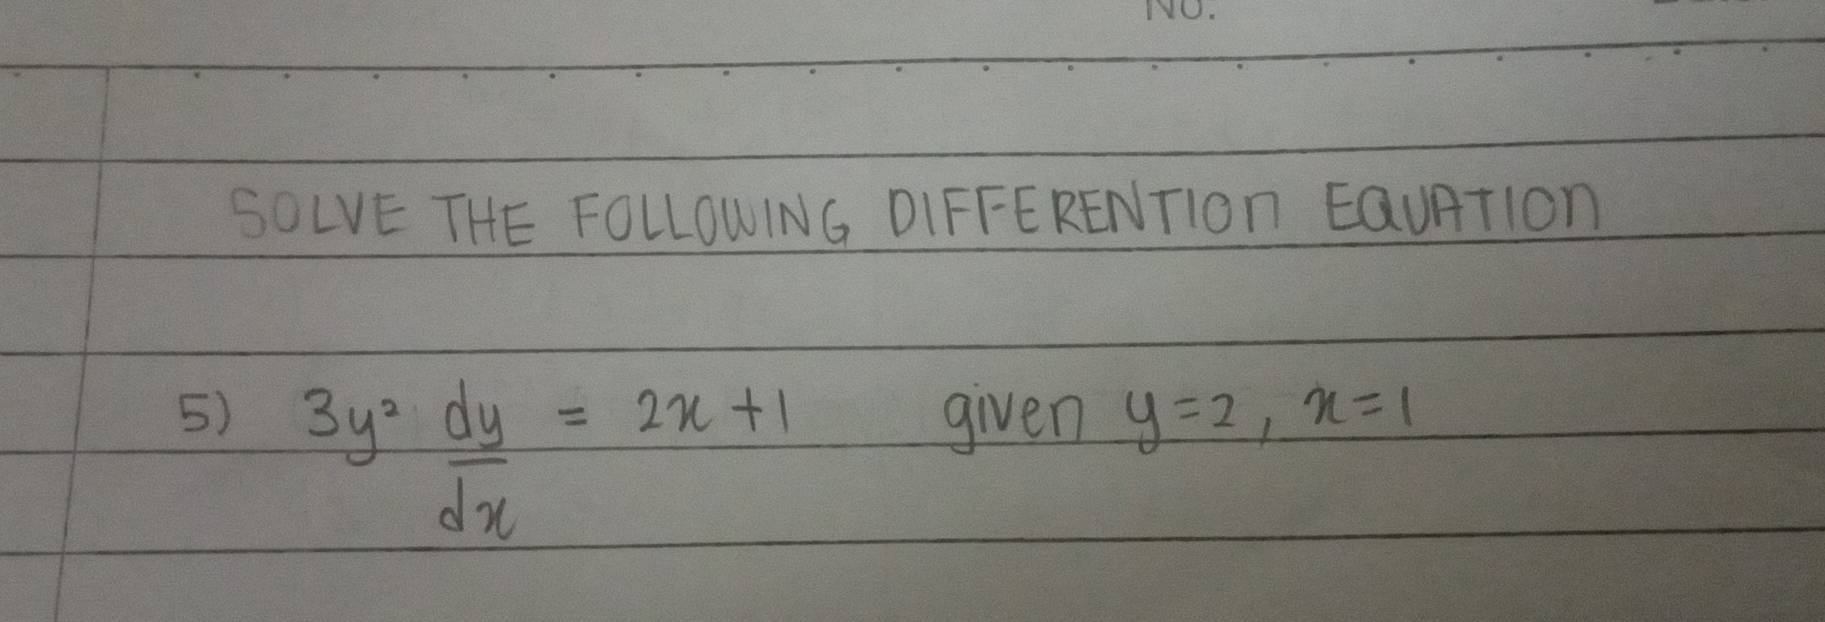 No.
SOLVE THE FOLLOWING DIFFERENTION EQUATION
5) 3y² dy/dx = 2x + 1 given y = 2, x = 1